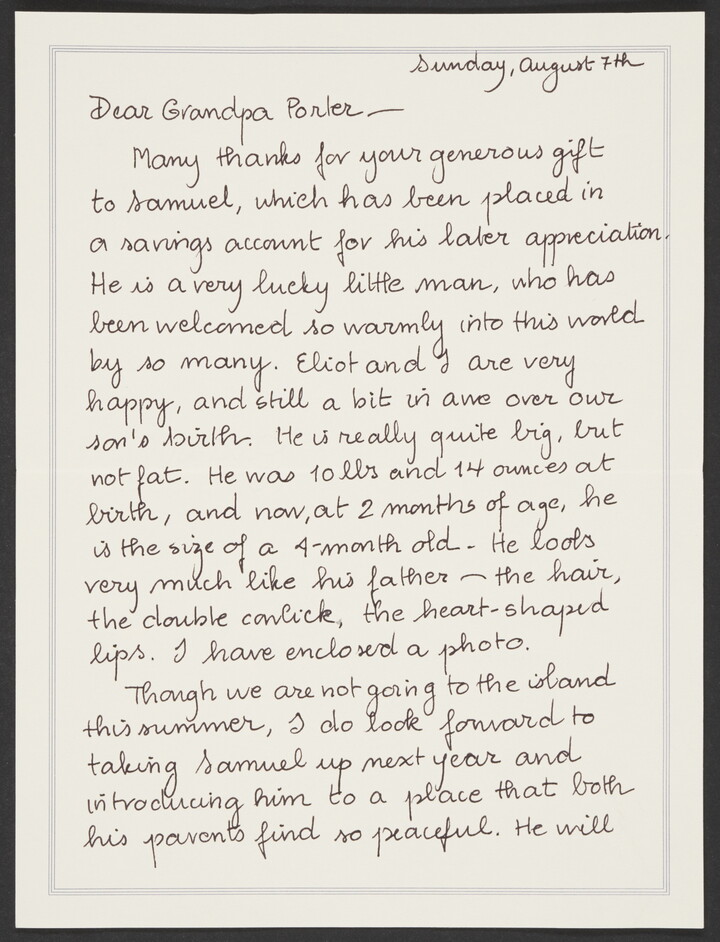 Sunday, August 7th
Dear Grandpa Porter —
Many thanks for your generous gift
to Samuel, which has been placed in
a savings account for his later appreciation.
He is a very lucky little man, who has
been welcomed so warmly into this world
by so many. Eliot and I are very
happy, and still a bit in awe over our
son's birth. He is really quite big, but
not fat. He was 10 lbs and 14 ounces at
birth, and now, at 2 months of age, he
is the size of a 4-month old - He looks
very much like his father — the hair,
the double cowlick, the heart-shaped
lips. I have enclosed a photo.
Though we are not going to the island
this summer, I do look forward to
taking Samuel up next year and
introducing him to a place that both
his parents find so peaceful. He will